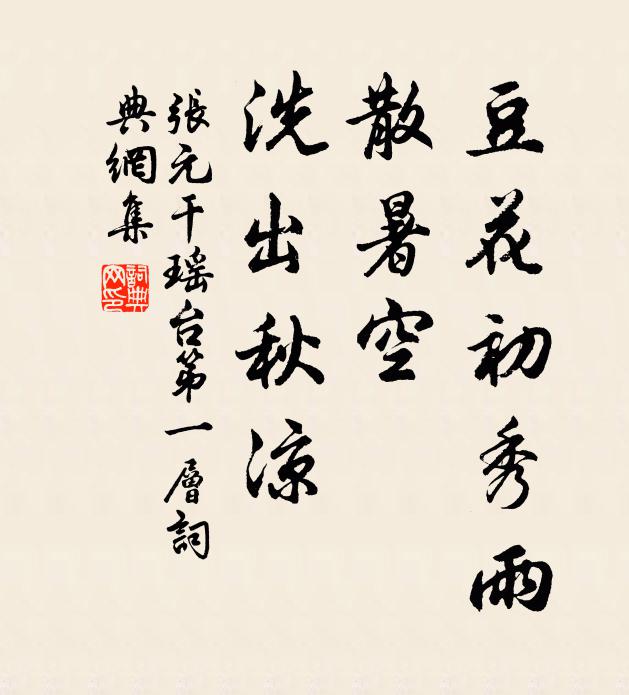 豆花初秀雨
散暑空
洗出秋凉
張元干瑶台第一層詞
典網集
詞典網印